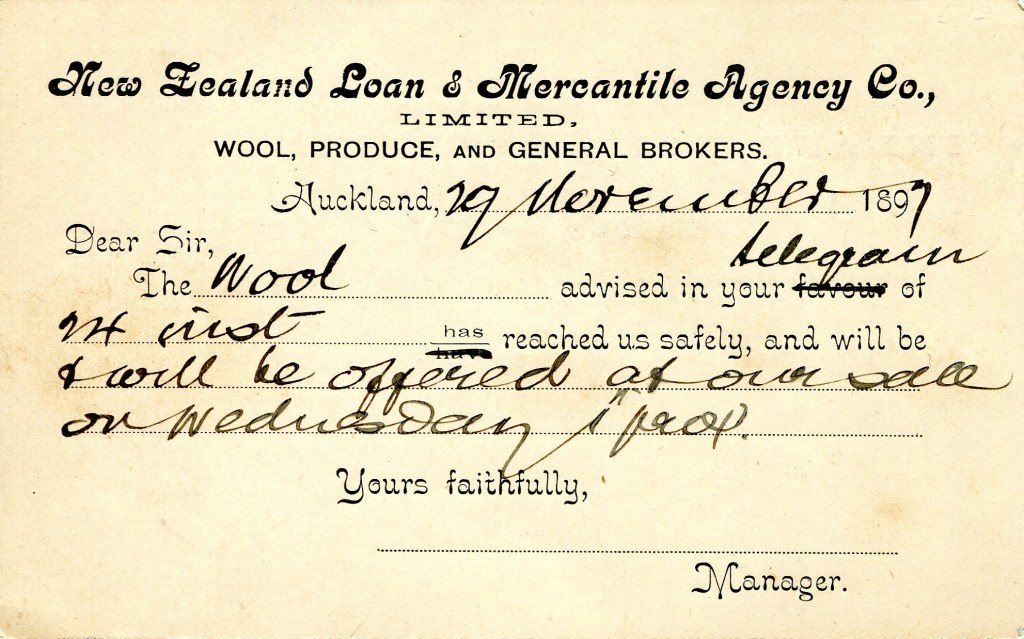 New Zealand Loan & Mercantile Agency Co.,
LIMITED,
WOOL, PRODUCE, AND GENERAL BROKERS.
Auckland, 29 November 1897
Dear Sir,
telegram
The Wool advised in your favour of
24 inst has have reached us safely, and will be
& will be offered at our sale
on Wednesday 1 prox.
Yours faithfully,
Manager.